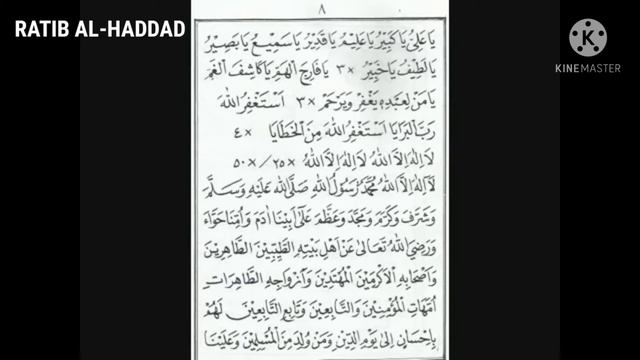 RATIB AL-HADDAD
KINEMASTER
٨
يَا عَلِيُّ يَا كَبِيْرُ يَا عَلِيْمُ يَا قَدِيْرُ يَا سَمِيْعُ يَا بَصِيْرُ
يَا لَطِيْفُ يَا خَبِيْرُ ×٣ يَا فَارِجَ الْهَمِّ يَا كَاشِفَ الْغَمِّ
يَا مَنْ لِعَبْدِهِ يَغْفِرُ وَيَرْحَمُ ×٣ اَسْتَغْفِرُ اللهَ
رَبَّ الْبَرَايَا اَسْتَغْفِرُ اللهَ مِنَ الْخَطَايَا ×٤
لَااِلٰهَ اِلَّا اللهُ لَااِلٰهَ اِلَّا اللهُ ×٢٥/×٥٠
لَااِلٰهَ اِلَّا اللهُ مُحَمَّدٌ رَسُوْلُ اللهِ صَلَّى اللهُ عَلَيْهِ وَسَلَّمَ
وَشَرَّفَ وَكَرَّمَ وَمَجَّدَ وَعَظَّمَ عَلَى اَبِيْنَا اٰدَمَ وَاُمِّنَا حَوَّاءَ
وَرَضِيَ اللهُ تَعَالٰى عَنْ اَهْلِ بَيْتِهِ الطَّيِّبِيْنَ الطَّاهِرِيْنَ
وَاَصْحَابِهِ الْاَكْرَمِيْنَ الْمُهْتَدِيْنَ وَاَزْوَاجِهِ الطَّاهِرَاتِ
اُمَّهَاتِ الْمُؤْمِنِيْنَ وَالتَّابِعِيْنَ وَتَابِعِ التَّابِعِيْنَ لَهُمْ
بِاِحْسَانٍ اِلٰى يَوْمِ الدِّيْنِ وَمَنْ وُلِدَ مِنَ الْمُسْلِمِيْنَ وَعَلَيْنَا